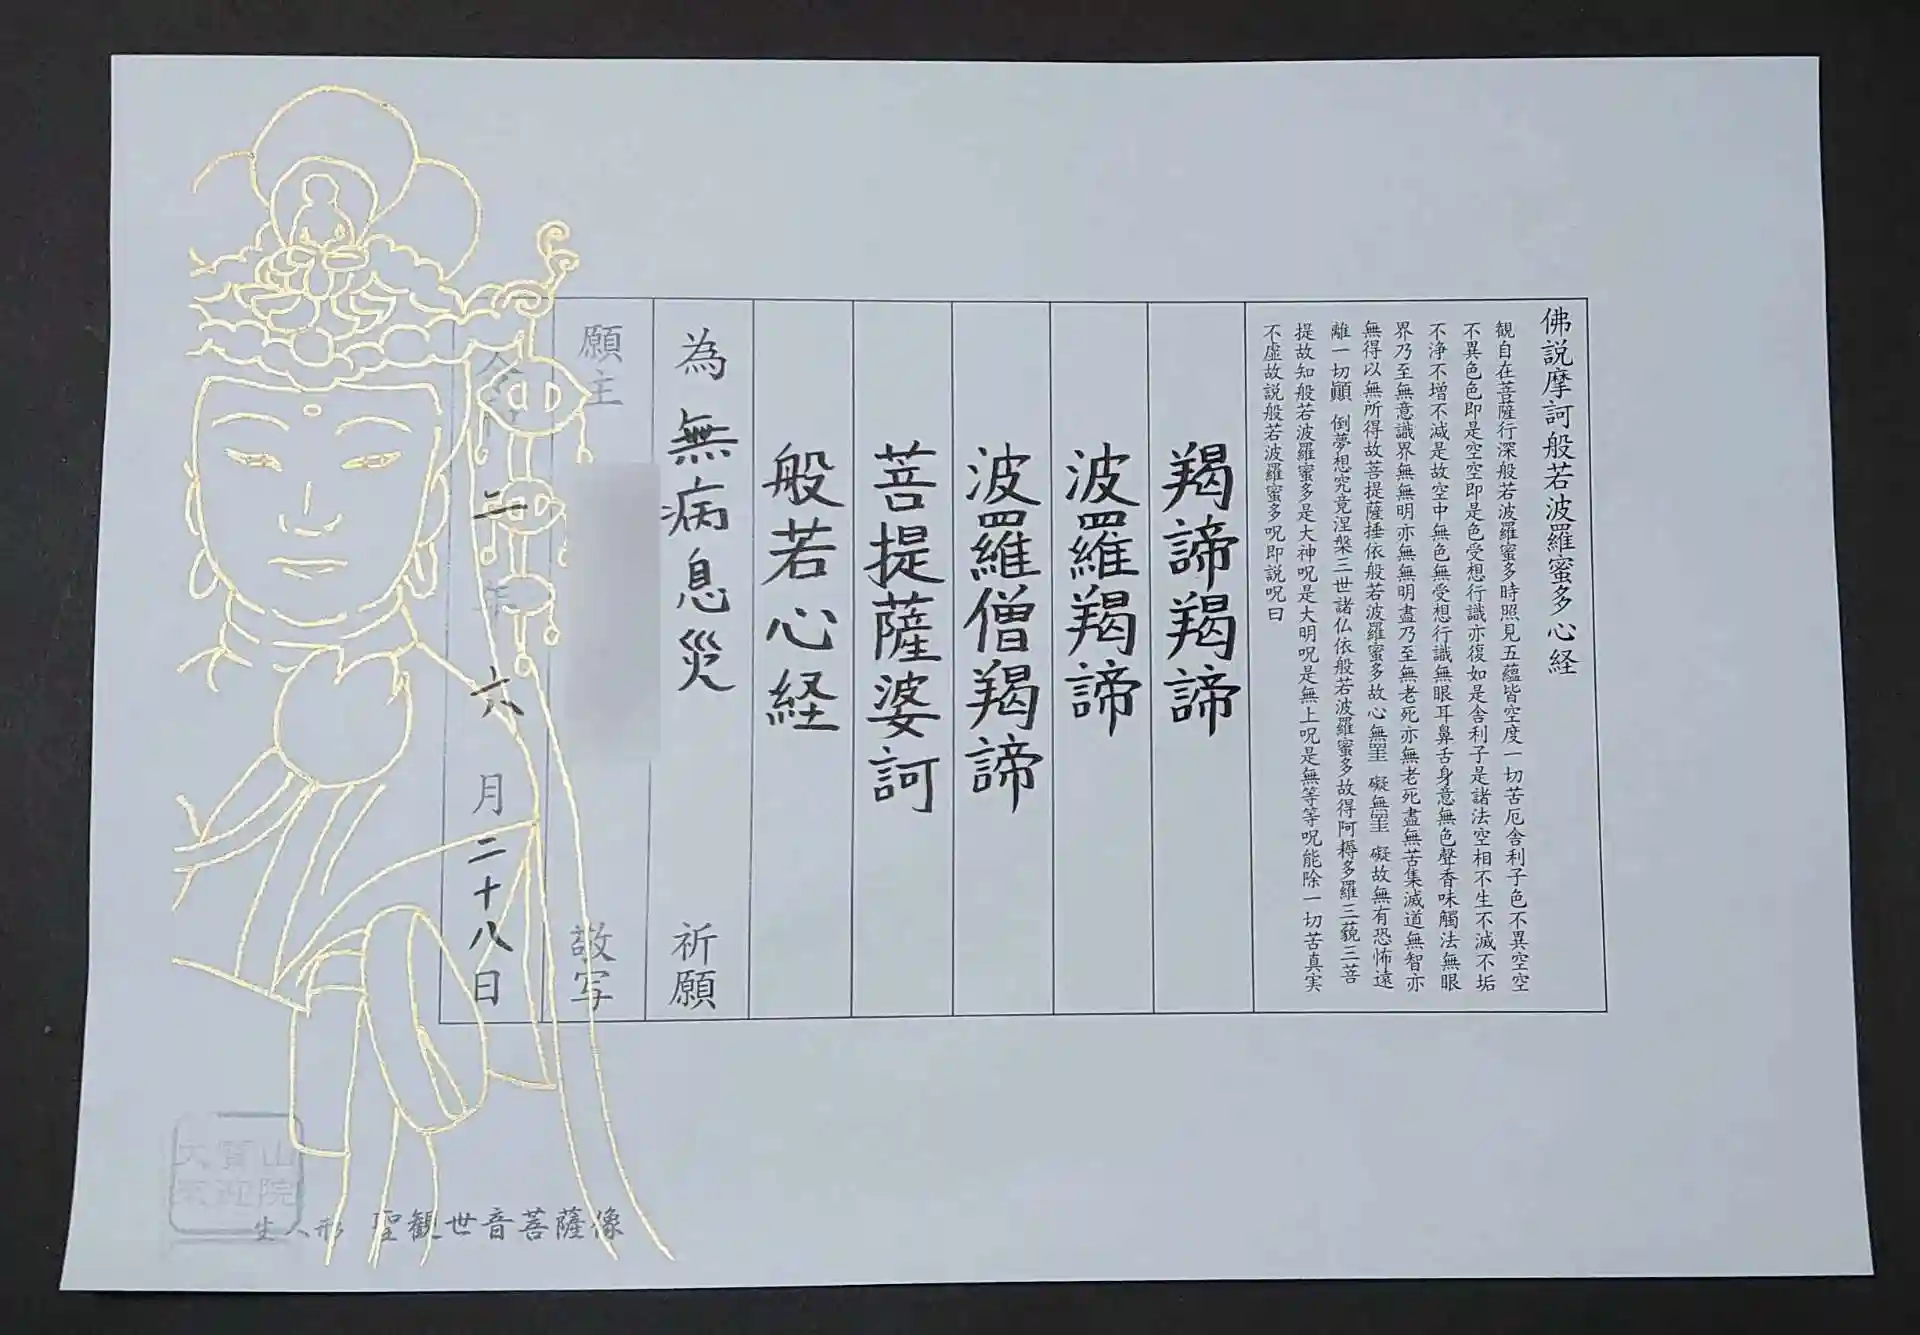 佛説摩訶般若波羅蜜多心経
観自在菩薩行深般若波羅蜜多時照見五蘊皆空度一切苦厄舎利子色不異空空
不異色色即是空空即是色受想行識亦復如是舎利子是諸法空相不生不滅不垢
不浄不増不減是故空中無色無受想行識無眼耳鼻舌身意無色聲香味觸法無眼
界乃至無意識界無無明亦無無明盡乃至無老死亦無老死盡無苦集滅道無智亦
無得以無所得故菩提薩埵依般若波羅蜜多故心無罣礙無罣礙故無有恐怖遠
離一切顚倒夢想究竟涅槃三世諸仏依般若波羅蜜多故得阿耨多羅三藐三菩
提故知般若波羅蜜多是大神呪是大明呪是無上呪是無等等呪能除一切苦真実
不虚故説般若波羅蜜多呪即説呪曰
羯諦羯諦
波羅羯諦
波羅僧羯諦
菩提薩婆訶
般若心経
為 無病息災 祈願
願主 敬写
年 六月二十八日
生人形 聖観世音菩薩像